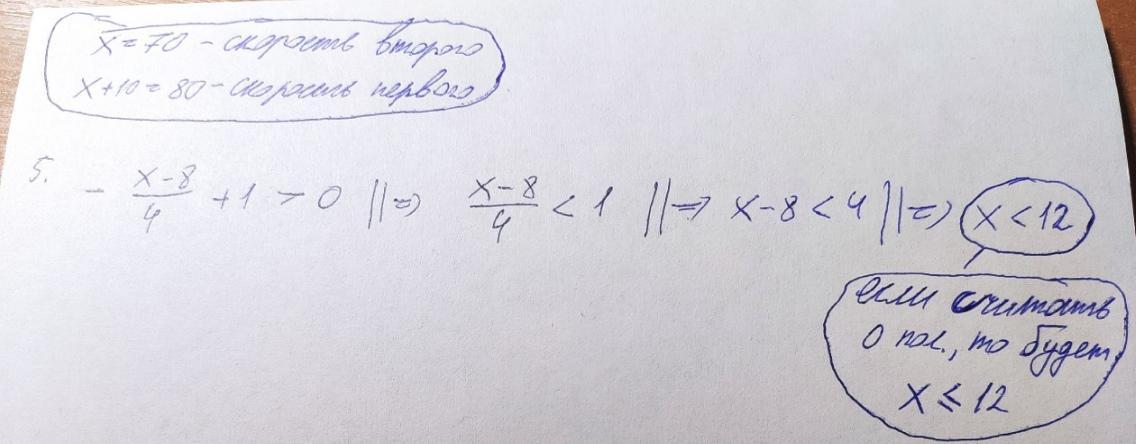 x=70 - скорость второго
x+10=80 - скорость первого
5. - \frac{x-8}{4} +1 > 0 ||=> \frac{x-8}{4} < 1 ||=> x-8<4 ||=> x<12
если считать
0 пол., то будет
x ≤ 12